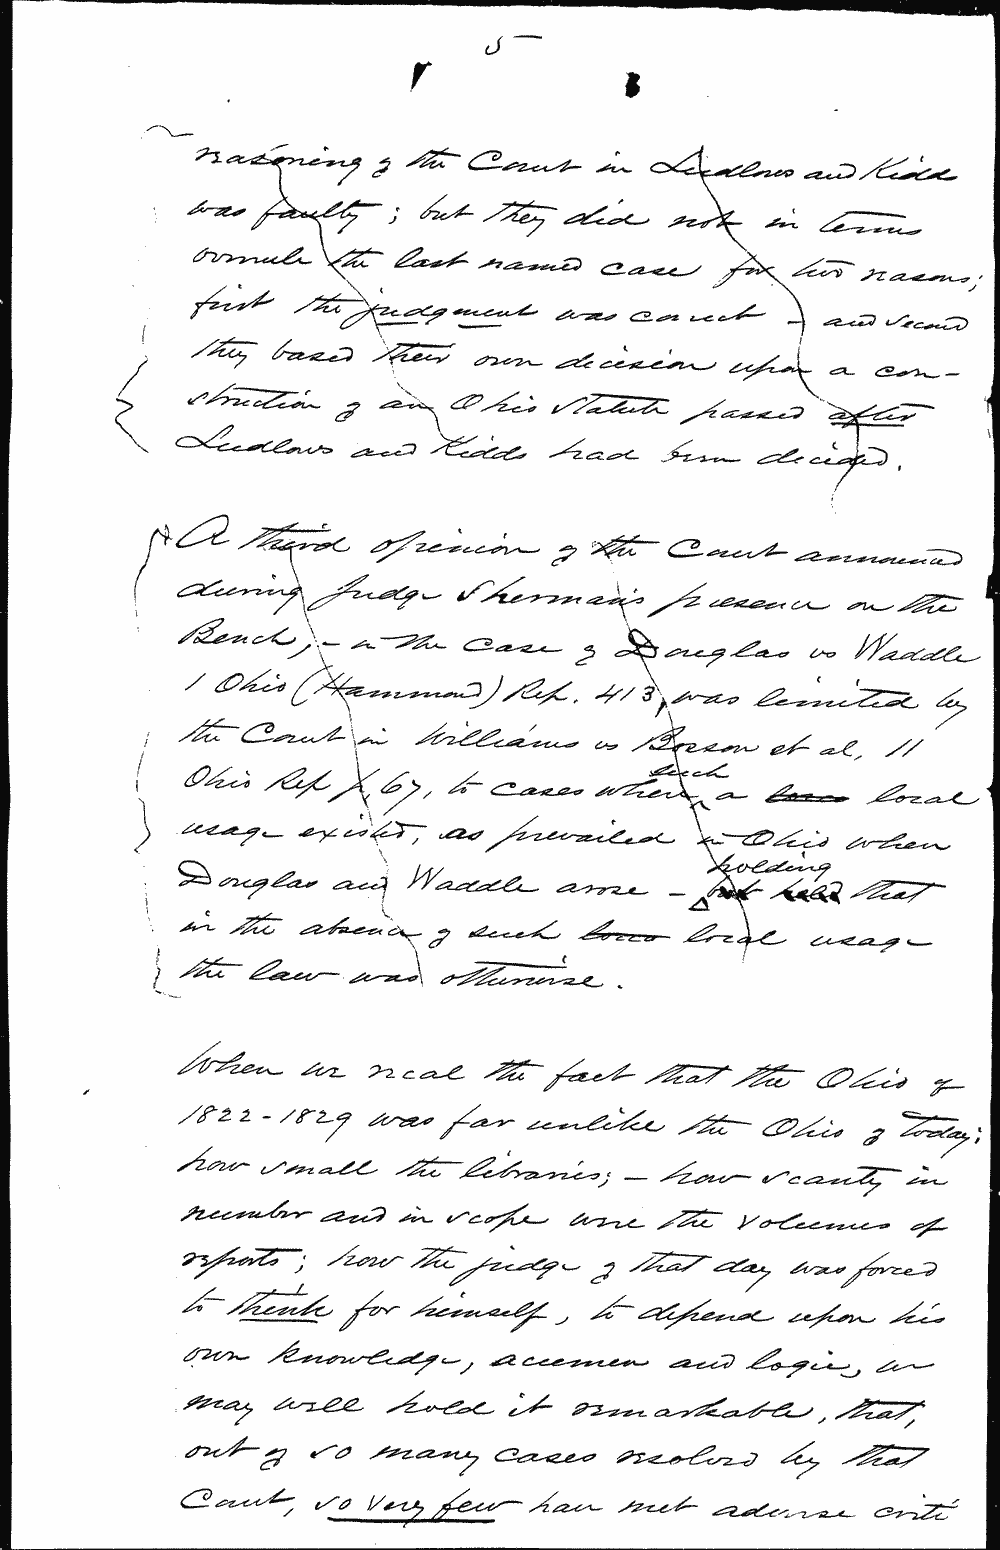 5
reasoning of the Court in Ludlows and Kidds
was faulty; but they did not in terms
overrule the last named case for two reasons;
first the judgment was correct – and second
they based their own decision upon a con-
struction of an Ohio statute passed after
Ludlows and Kidds had been decided.
A third opinion of the Court announced
during Judge Sherman's presence on the
Bench, – in the case of Douglas vs Waddle
1 Ohio (Hammond) Rep. 413, was limited by
the Court in Williams vs Bosson et al, 11
such
Ohio Rep p, 67, to cases where a local
usage existed, as prevailed in Ohio when
holding
Douglas and Waddle arose – but held that
in the absence of such local usage
the law was otherwise.
When we recal the fact that the Ohio of
1822-1829 was far unlike the Ohio of today;
how small the libraries; – how scanty in
number and in scope were the volumes of
reports; how the judge of that day was forced
to think for himself, to depend upon his
own knowledge, acumen and logic, we
may well hold it remarkable, that,
out of so many cases resolved by that
Court, so very few have met adverse criti